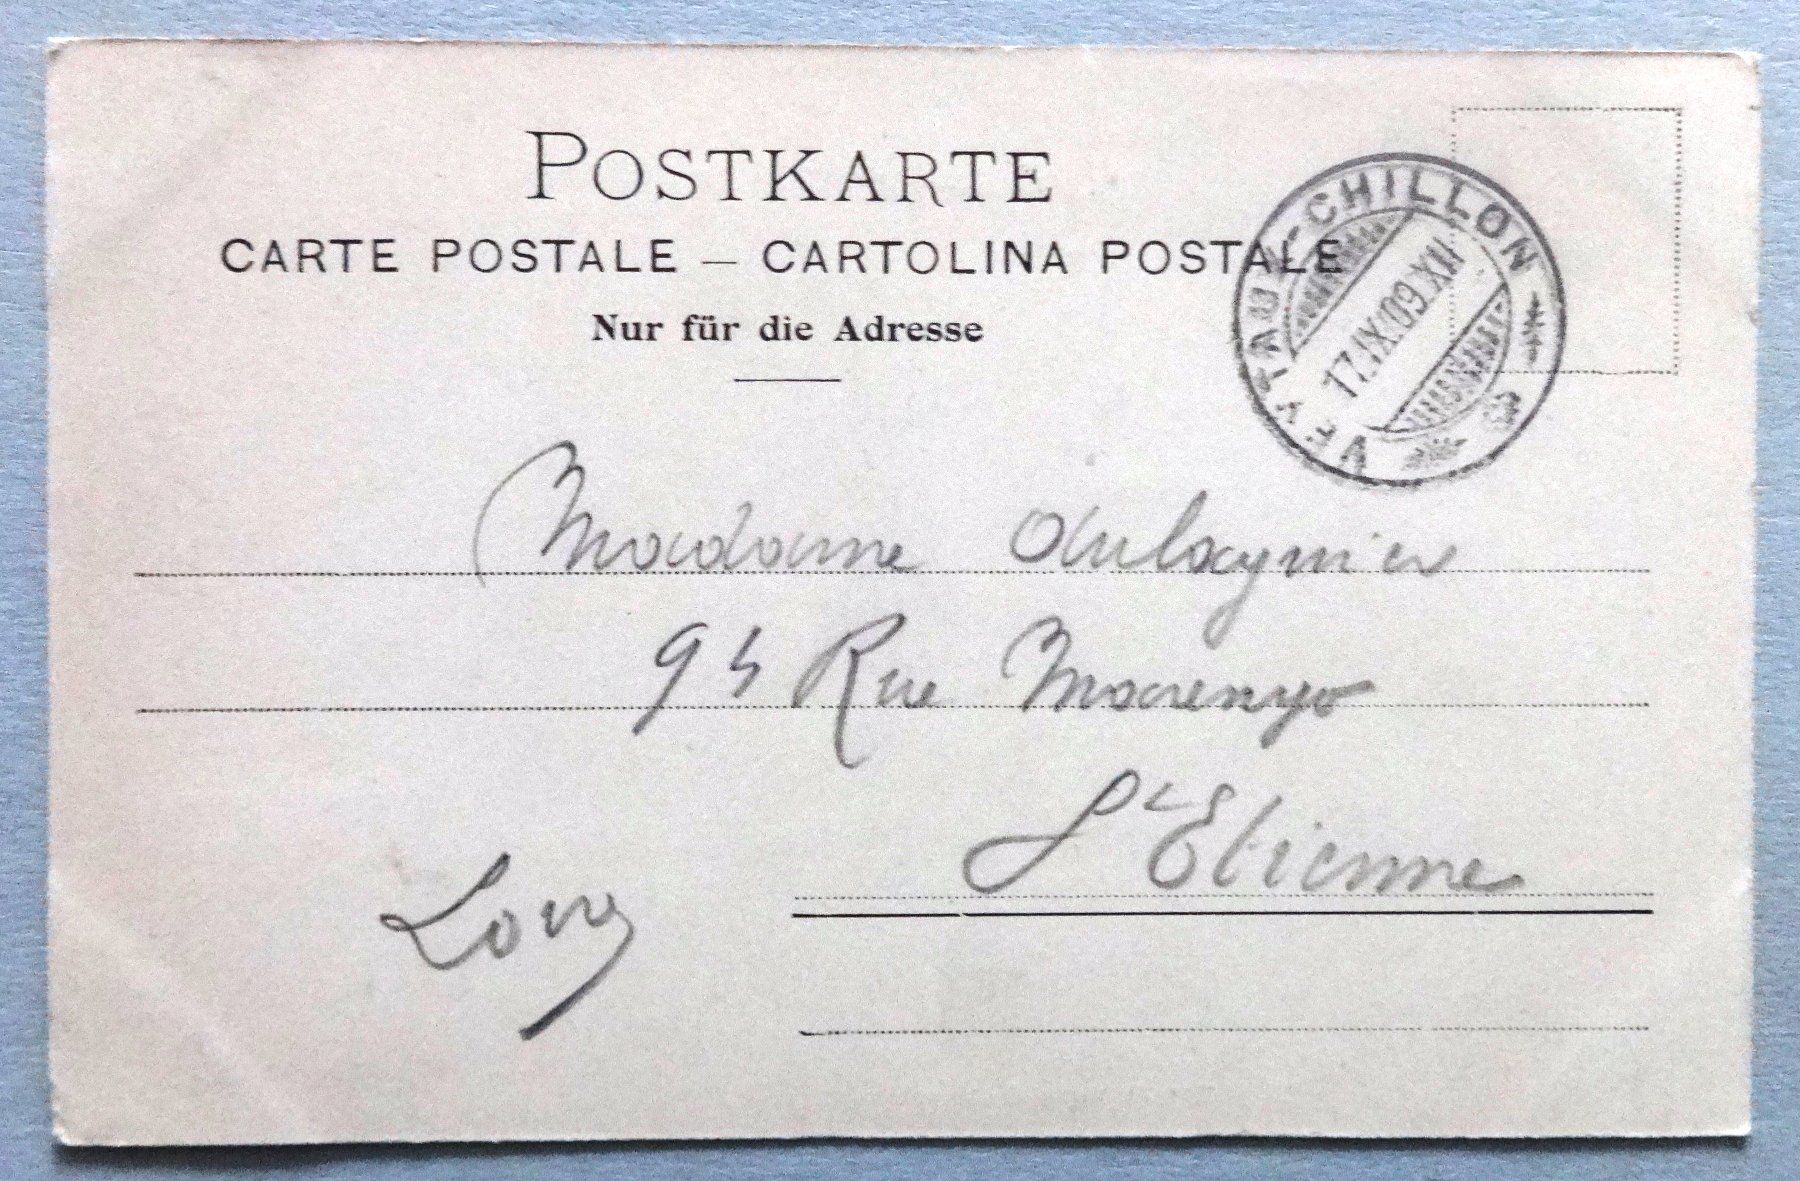 POSTKARTE
CARTE POSTALE — CARTOLINA POSTALE
Nur für die Adresse
VEYTAUX-CHILLON
17.IX.09.XII
Madame Aulagnier
94 Rue Marengo
St Etienne